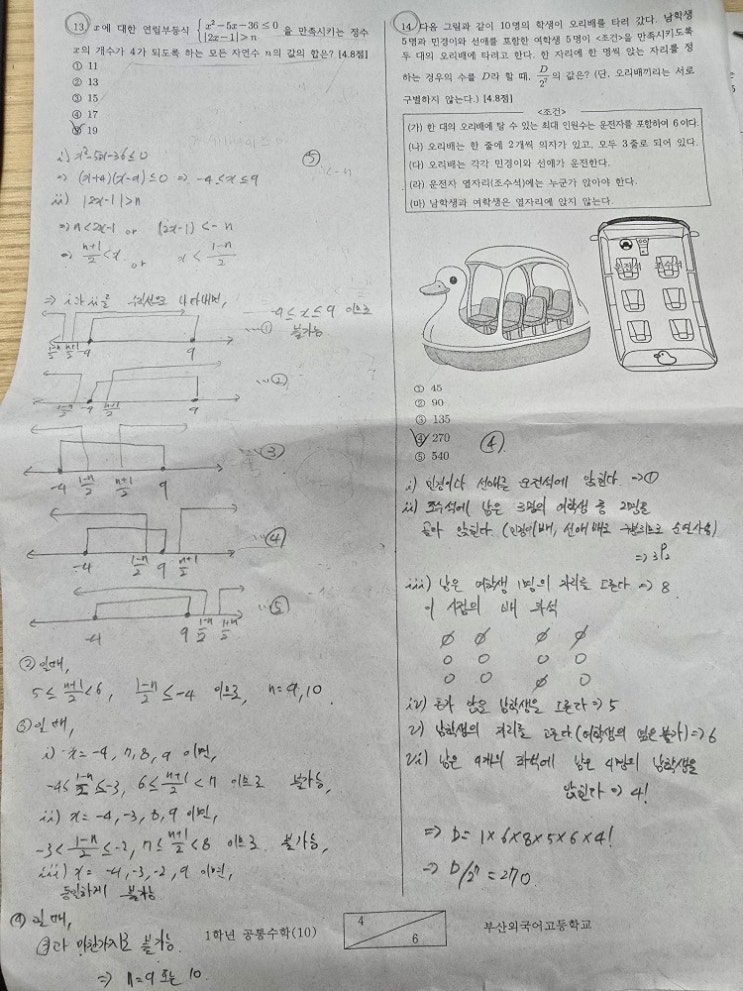 13) x에 대한 연립부등식 { x²-5x-36≤0
|2x-1|>n 을 만족시키는 정수
x의 개수가 4가 되도록 하는 모든 자연수 n의 값의 합은? [4.8점]
① 11
② 13
③ 15
④ 17
⑤ 19
⑤
i) x²-5x-36≤0
⇒ (x+4)(x-9)≤0 ⇒ -4≤x≤9
ii) |2x-1|>n
⇒ n<2x-1 or (2x-1)<-n
⇒ (n+1)/2<x or x<(1-n)/2
⇒ i과 ii를 수직선으로 나타내면,
-4≤x≤9 이므로
…① 불가능
(1-n)/2 (n+1)/2 -4 9
…②
(1-n)/2 -4 (n+1)/2 9
…③
-4 (1-n)/2 (n+1)/2 9
…④
-4 (1-n)/2 9 (n+1)/2
…⑤
-4 9 (1-n)/2 (1+n)/2
② 일때,
5≤(n+1)/2<6, (1-n)/2≤-4 이므로, n=9,10.
③ 일때,
i) x=-4, 7, 8, 9 이면,
-4≤(1-n)/2≤-3, 6≤(n+1)/2<7 이므로 불가능,
ii) x=-4, -3, 8, 9 이면,
-3<(1-n)/2≤-2, 7≤(n+1)/2<8 이므로 불가능,
iii) x= -4, -3, -2, 9 이면,
동일하게 불가능
④ 일때,
③과 마찬가지로 불가능.
⇒ n=9 또는 10.
14) 다음 그림과 같이 10명의 학생이 오리배를 타러 갔다. 남학생
5명과 민경이와 선애를 포함한 여학생 5명이 <조건>을 만족시키도록
두 대의 오리배에 타려고 한다. 한 자리에 한 명씩 앉는 자리를 정
하는 경우의 수를 D라 할 때, D/2⁷의 값은? (단, 오리배끼리는 서로
구별하지 않는다.) [4.8점]
<조건>
(가) 한 대의 오리배에 탈 수 있는 최대 인원수는 운전자를 포함하여 6이다.
(나) 오리배는 한 줄에 2개씩 의자가 있고, 모두 3줄로 되어 있다.
(다) 오리배는 각각 민경이와 선애가 운전한다.
(라) 운전자 옆자리(조수석)에는 누군가 앉아야 한다.
(마) 남학생과 여학생은 옆자리에 앉지 않는다.
운전석 조수석
① 45
② 90
③ 135
④ 270
⑤ 540
④
i) 민경이와 선애를 운전석에 앉힌다. ⇒①
ii) 조수석에 남은 3명의 여학생 중 2명을
골라 앉힌다. (민경이배, 선애배로 구분되므로 순열사용)
⇒ ₃P₂
iii) 남은 여학생 1명의 자리를 고른다 ⇒ 8
이 시점의 배 좌석
∅ ∅ ∅ ∅
O O O O
O O ∅ O
iv) 혼자 앉은 남학생을 고른다 ⇒ 5
v) 남학생의 자리를 고른다 (여학생의 옆은 불가) ⇒ 6
vi) 남은 4개의 좌석에 남은 4명의 남학생을
앉힌다 ⇒ 4!
⇒ D=1×6×8×5×6×4!
⇒ D/2⁷=270.
1학년 공통수학(10)
4
6
부산외국어고등학교